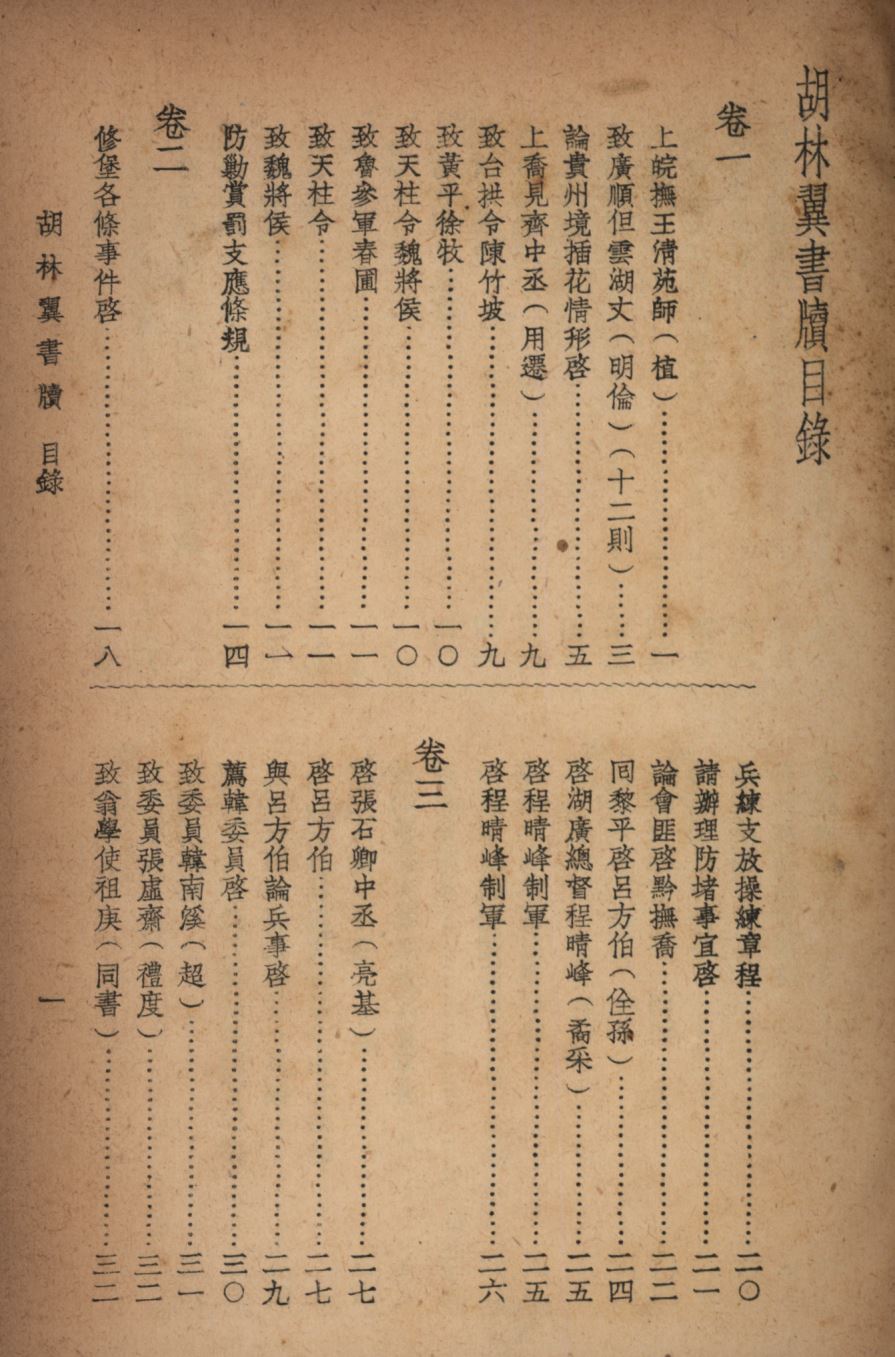 胡林翼書牘目錄
卷一
上皖撫王清苑師（植）……一
致廣順但雲湖丈（明倫）（十二則）……三
論貴州境插花情形啓……五
上喬見齊中丞（用遷）……九
致台拱令陳竹坡……九
致黃平徐牧……一〇
致天柱令魏將侯……一〇
致魯參軍春圃……一一
致天柱令……一一
致魏將侯……一一
防勦賞罰支應條規……一四
卷二
修堡各條事件啓……一八
兵練支放操練章程……二〇
請辦理防堵事宜啓……二一
論會匪啓黔撫喬……二二
同黎平啓呂方伯（佺孫）……二四
啓湖廣總督程晴峰（矞采）……二五
啓程晴峰制軍……二五
啓程晴峰制軍……二六
卷三
啓張石卿中丞（亮基）……二七
啓呂方伯……二七
與呂方伯論兵事啓……二九
薦韓委員啓……三〇
致委員韓南溪（超）……三一
致委員張虛齋（禮度）……三二
致翁學使祖庚（同書）……三二
胡林翼書牘 目錄
一